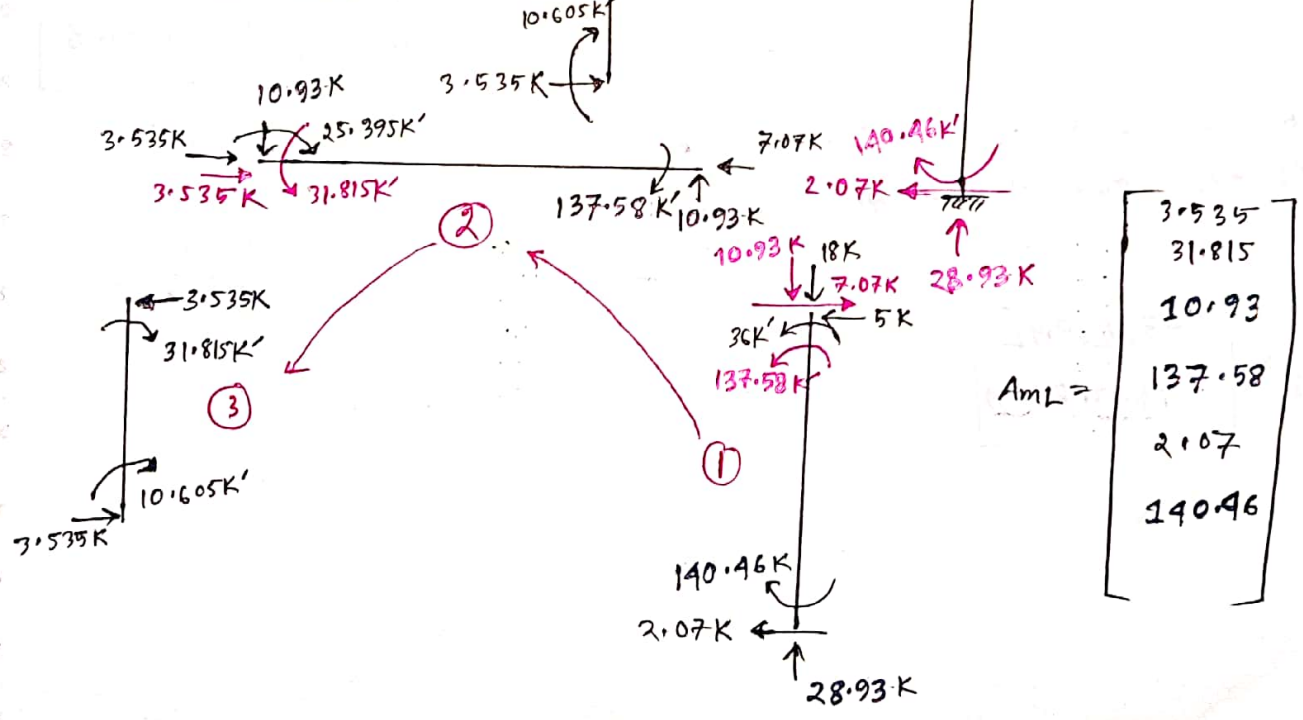 10.605K'
3.535K
10.93K
3.535K
25.395K'
3.535K
31.815K'
137.58K'
10.93K
7.07K
140.46K'
2.07K
28.93K
2
10.93K
18K
7.07K
5K
36K'
137.58K'
3.535K
31.815K'
3
10.605K'
3.535K
1
140.46K
2.07K
28.93K
AmL =
3.535
31.815
10.93
137.58
2.07
140.46